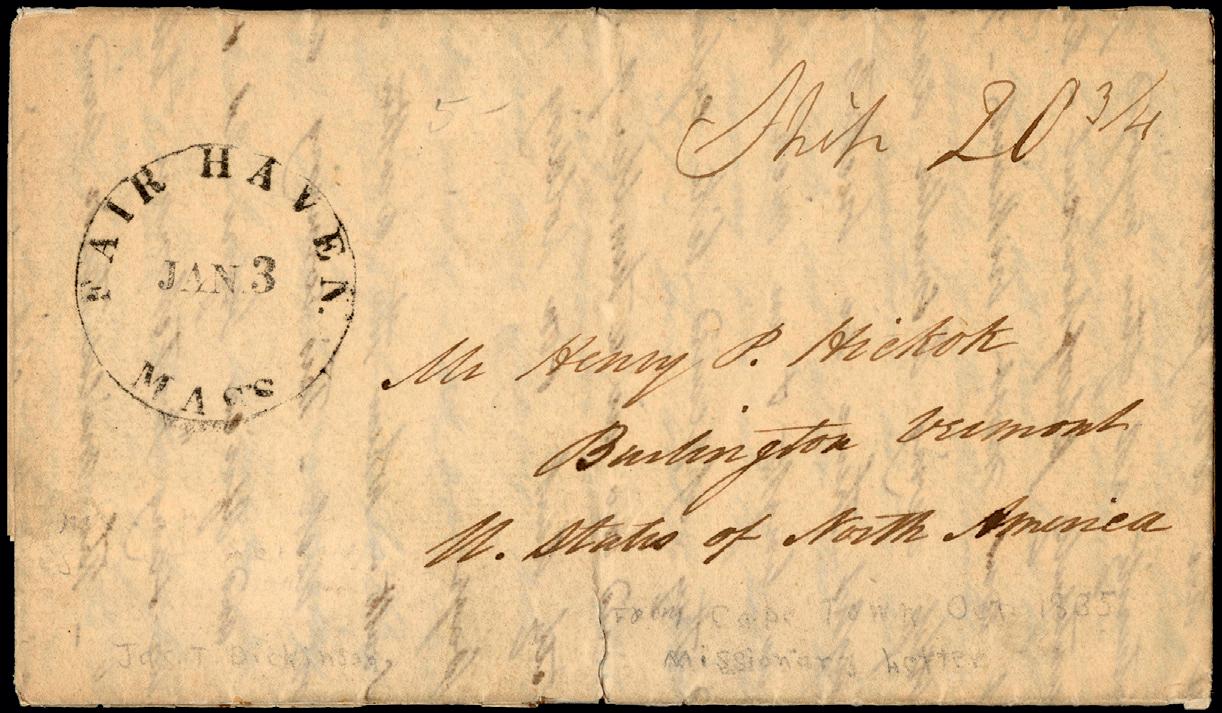 Ship 20 3/4
5
FAIR HAVEN.
JAN. 3
MASS
Mr Henry P. Hickok
Burlington Vermont
U. States of North America
From Cape Town Oct. 1835
Jas. T. Dickinson
Missionary Letter